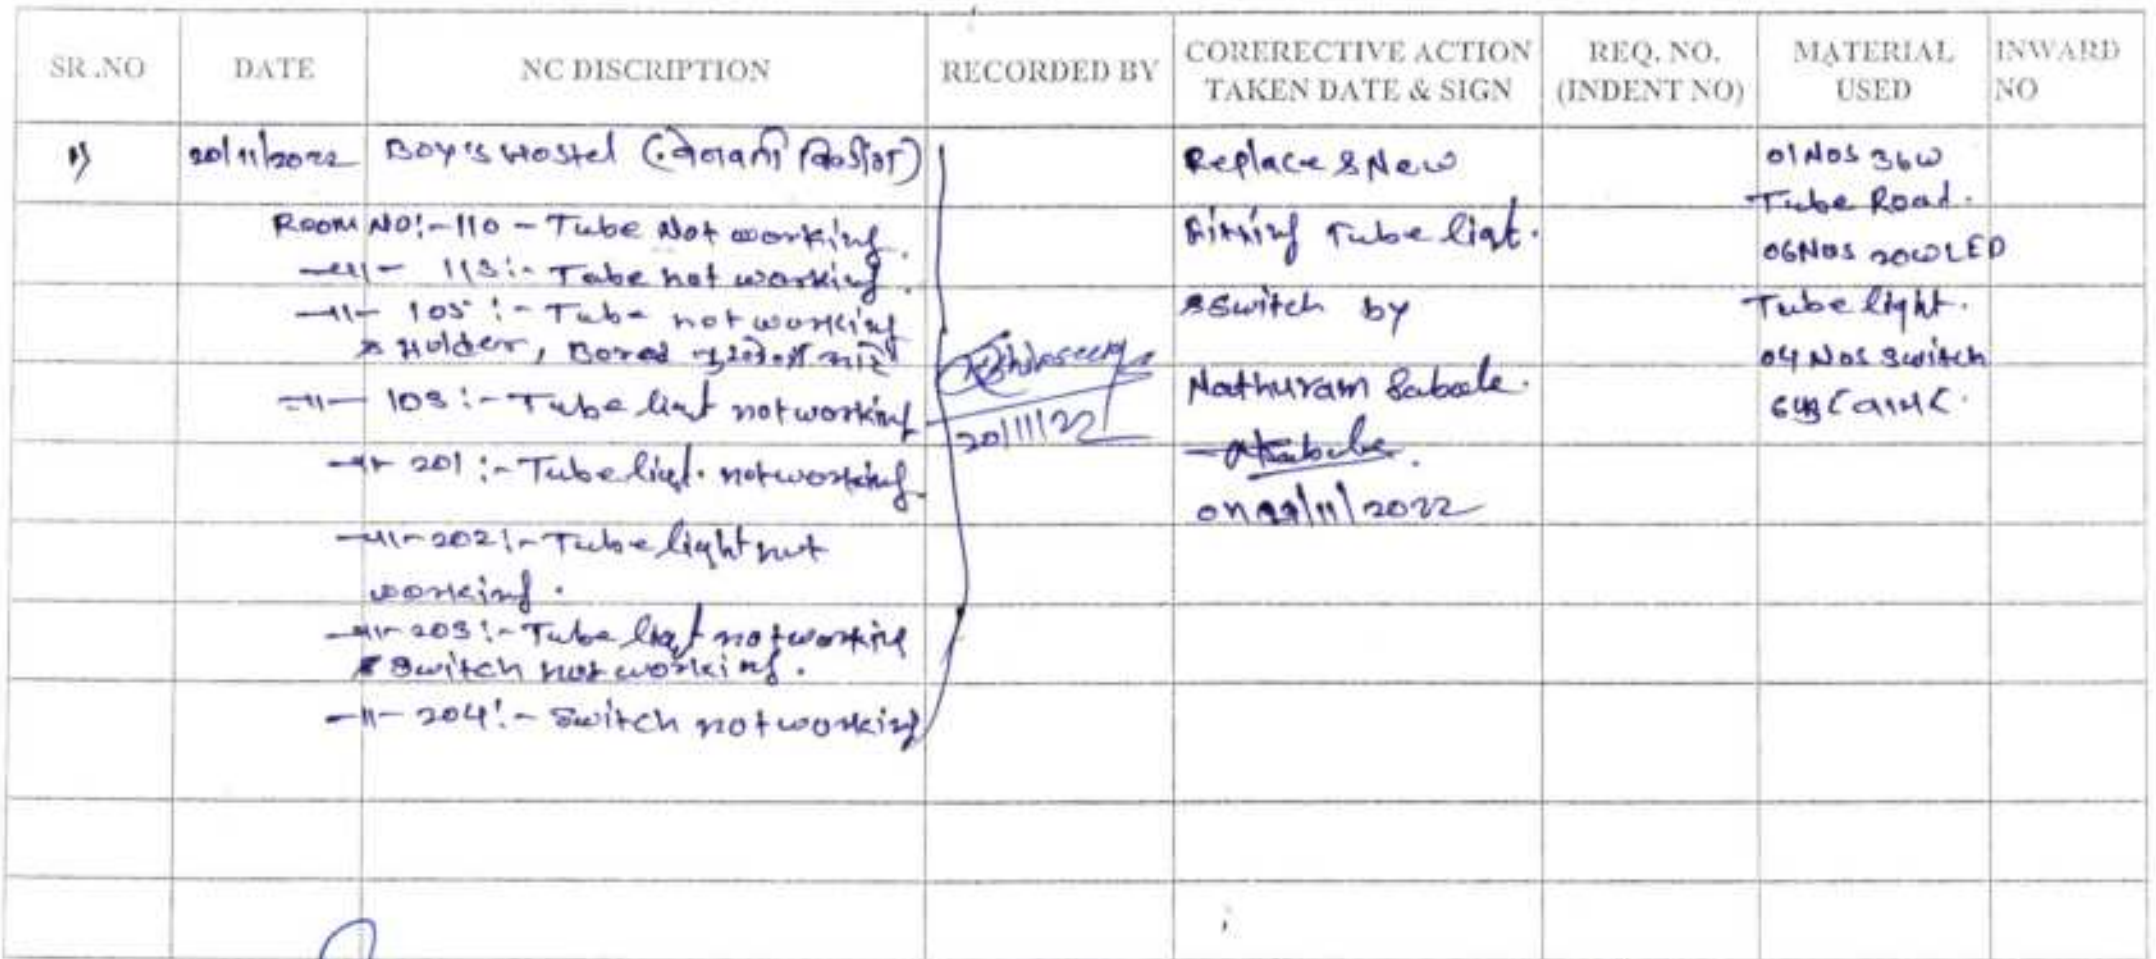 SR.NO DATE NC DISCRIPTION RECORDED BY CORERECTIVE ACTION TAKEN DATE & SIGN REQ. NO. (INDENT NO) MATERIAL USED INWARD NO
1) 20/11/2022 Boy's Hostel (
Room NO:-110 - Tube Not working.
-11- 113:- Tube not working.
-11- 105:- Tube not working
& Holder, Borad
-11- 103:- Tube liqt not working
-11- 201:- Tube liqt. not working.
-11- 202:- Tube light not
working.
-11- 203:- Tube liqt not working
& Switch not working.
-11- 204:- Switch not working
20/11/22
Replace & New
Fitting Tube liqt.
& Switch by
Nathuram Sabale.
on /11/2022
01 Nos 36W
Tube Road.
06 Nos 20W LED
Tube light.
04 Nos Switch